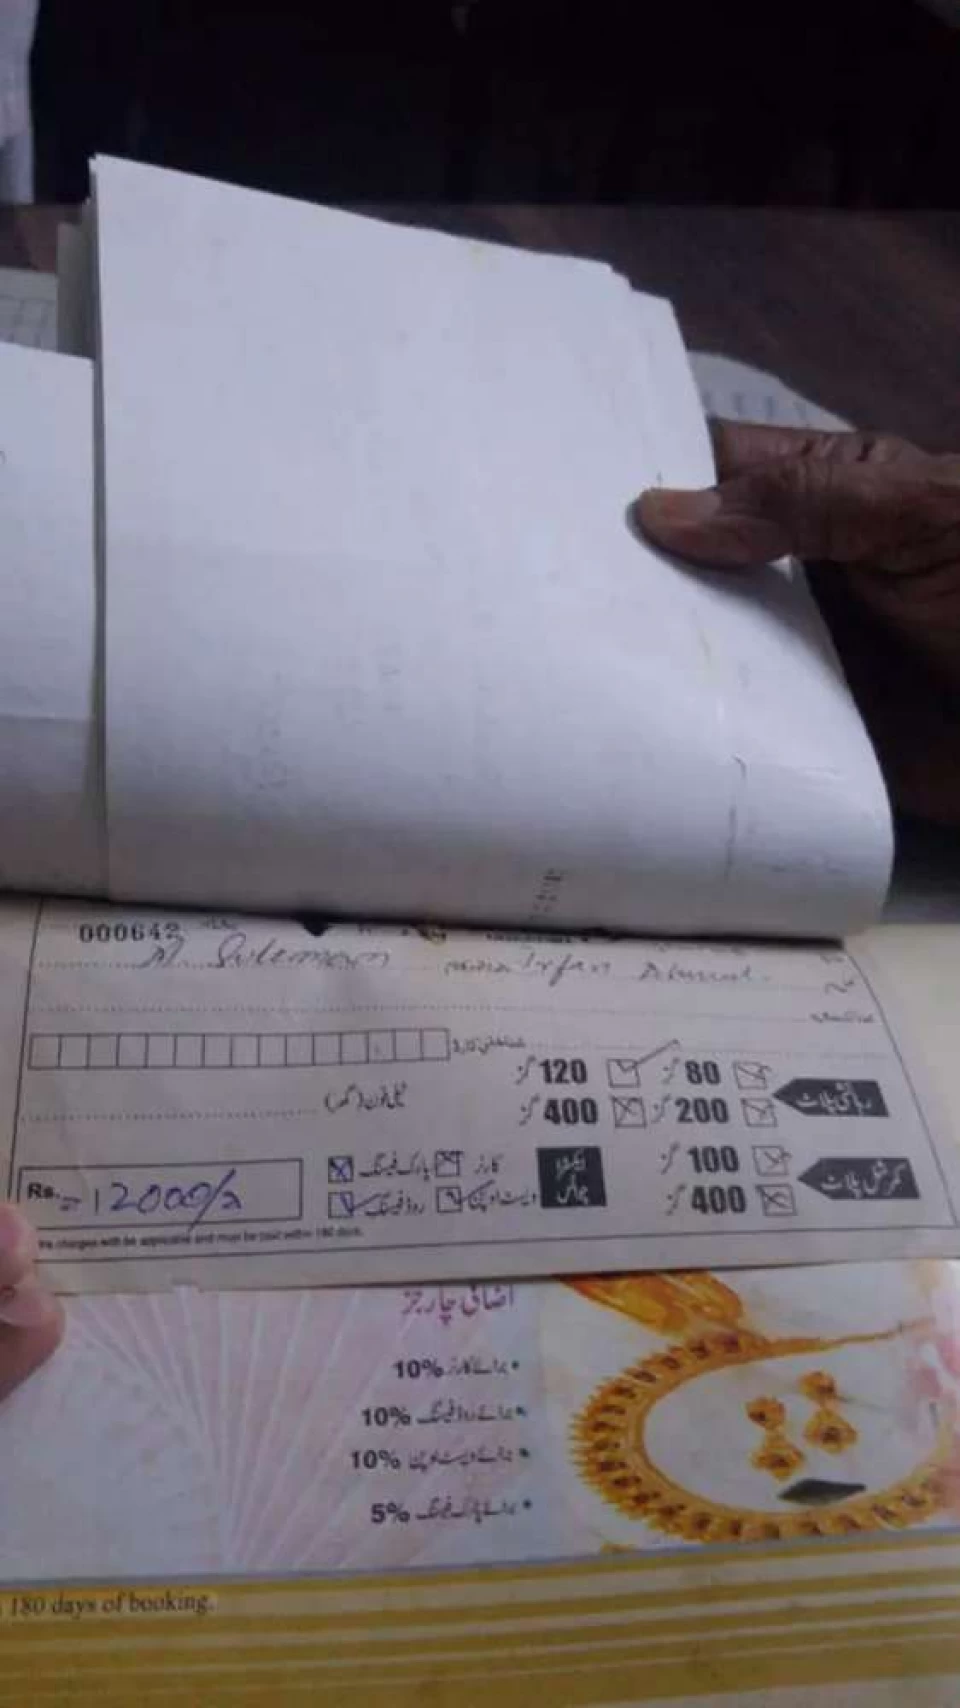 000642
M. Suleman Irfan Ahmed.
شناختی کارڈ
80 گز 120 گز
رہائشی پلاٹ
200 گز 400 گز
ٹیلی فون (گھر)
100 گز
کمرشل پلاٹ
400 گز
کارنر پارک فیسنگ
ویسٹ اوپن روڈ فیسنگ
Rs. =12000/=
charges will be applicable and must be paid within 180 days.
اضافی چارجز
• برائے کارنر 10%
• برائے روڈ فیسنگ 10%
• برائے ویسٹ اوپن 10%
• برائے پارک فیسنگ 5%
180 days of booking.